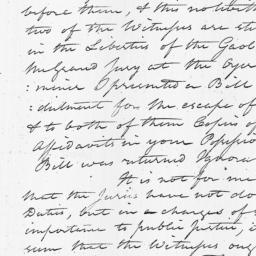 before them, & this notwith
two of the Witnesses are sti
in the Liberties of the Gaol
the Grand Jury at the Oyer
: miner I presented a Bill
: dictment for the escape of
& to both of them Copies of
Affidavits in your Possessio
Bill was returned Ignora
It is not for me
that the Juries have not do
Duties, but in a charge of s
importance to public Justice, i
seem that the Witnesses oug